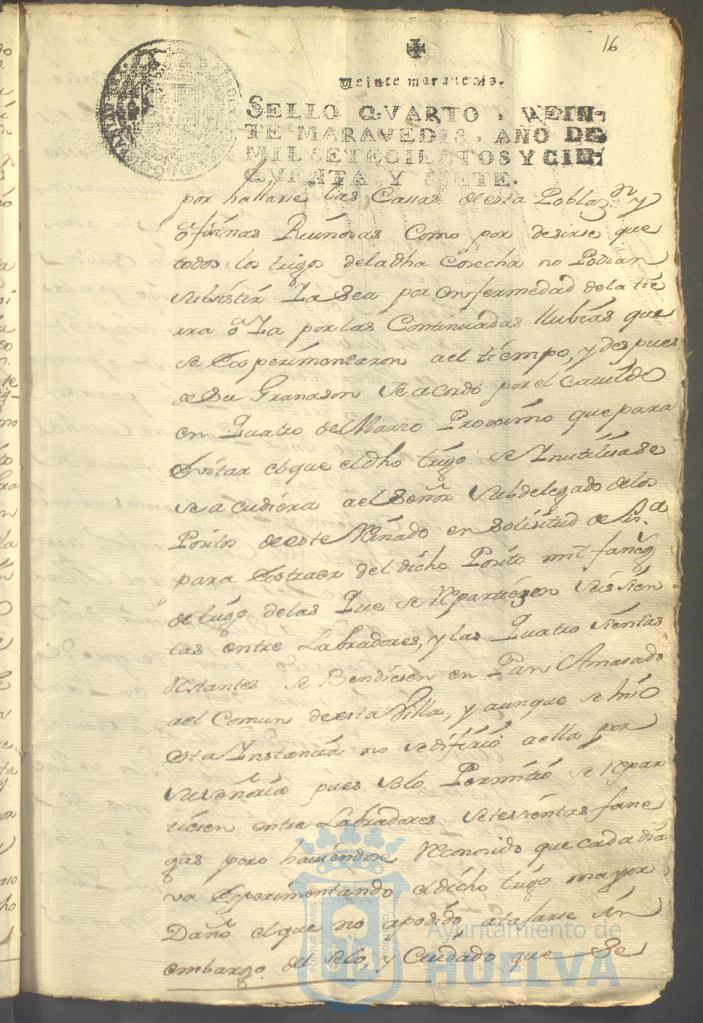 16
Veinte maravedis.
SELLO QVARTO, VEIN-
TE MARAVEDIS, AÑO DE
MIL SETECIENTOS Y CIN-
QVENTA Y SIETE.
por hallarse las Casas de esta Poblaz.n y
ofisinas Ruinosas Como por desirse que
todos los trigos de la dha Cosecha no Podian
subsistir Ya sea por enfermedad de la tie
rra o Ya por las Continuadas llubias que
se Experimentaron a el tiempo, y despues
de su Granason se acordó por el Cavildo
en Quatro de Marzo Proximo que para
Evitar el que el dho trigo se Ynutilisase
se acudiera a el Señor Subdelegado de los
Positos de este Reinado en Solisitud de Lis.a
para Extraer del dicho Posito mil fanegs
de trigo de las Que se Repartiesen Seis sien
tas entre Labradores, y las Quatro sientas
Restantes se Bendiesen en Pan Amasado
a el Comun de esta Villa, y aunque se hiso
esta Ynstancia no se difirió a ella por
su señoria pues solo Permitió se repar
tiesen entre Labradores setesientas fane
gas pero haviendose Reconosido que cada dia
va Experimentando el dicho trigo mayor
Daño el que no a podido atajarse sin
embargo del selo, y Cuidado que Se
Ayuntamiento de
HUELVA